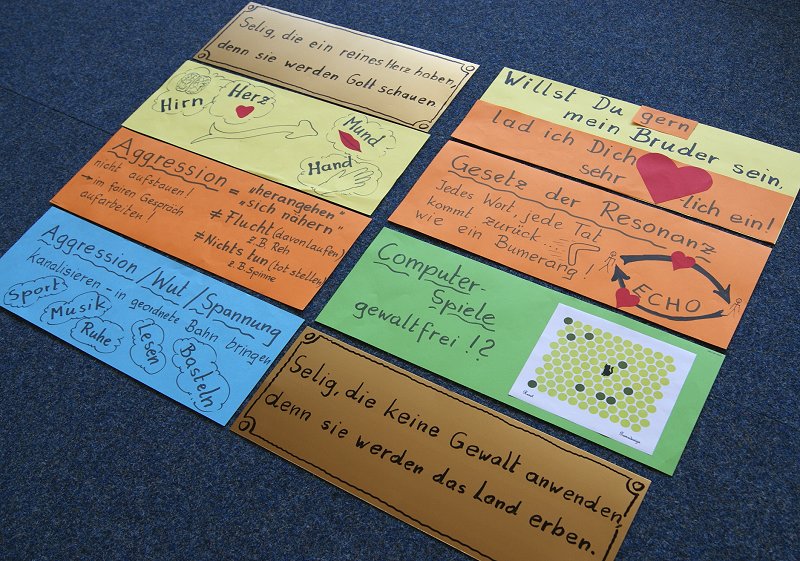 Selig, die ein reines Herz haben,
denn sie werden Gott schauen.
Hirn
Herz
Mund
Hand
Aggression = "herangehen"
"sich nähern"
nicht aufstauen!
→ im fairen Gespräch
aufarbeiten!
≠ Flucht (davonlaufen)
z.B. Reh
≠ Nichts tun (tot stellen)
z.B. Spinne
Aggression / Wut / Spannung
Kanalisieren - in geordnete Bahn bringen
Sport
Musik
Ruhe
Lesen
Basteln
Willst Du gern
mein Bruder sein,
lad ich Dich
sehr -lich ein!
Gesetz der Resonanz
Jedes Wort, jede Tat
kommt zurück
wie ein Bumerang!
ECHO
Computer-
Spiele
gewaltfrei!?
Selig, die keine Gewalt anwenden,
denn sie werden das Land erben.